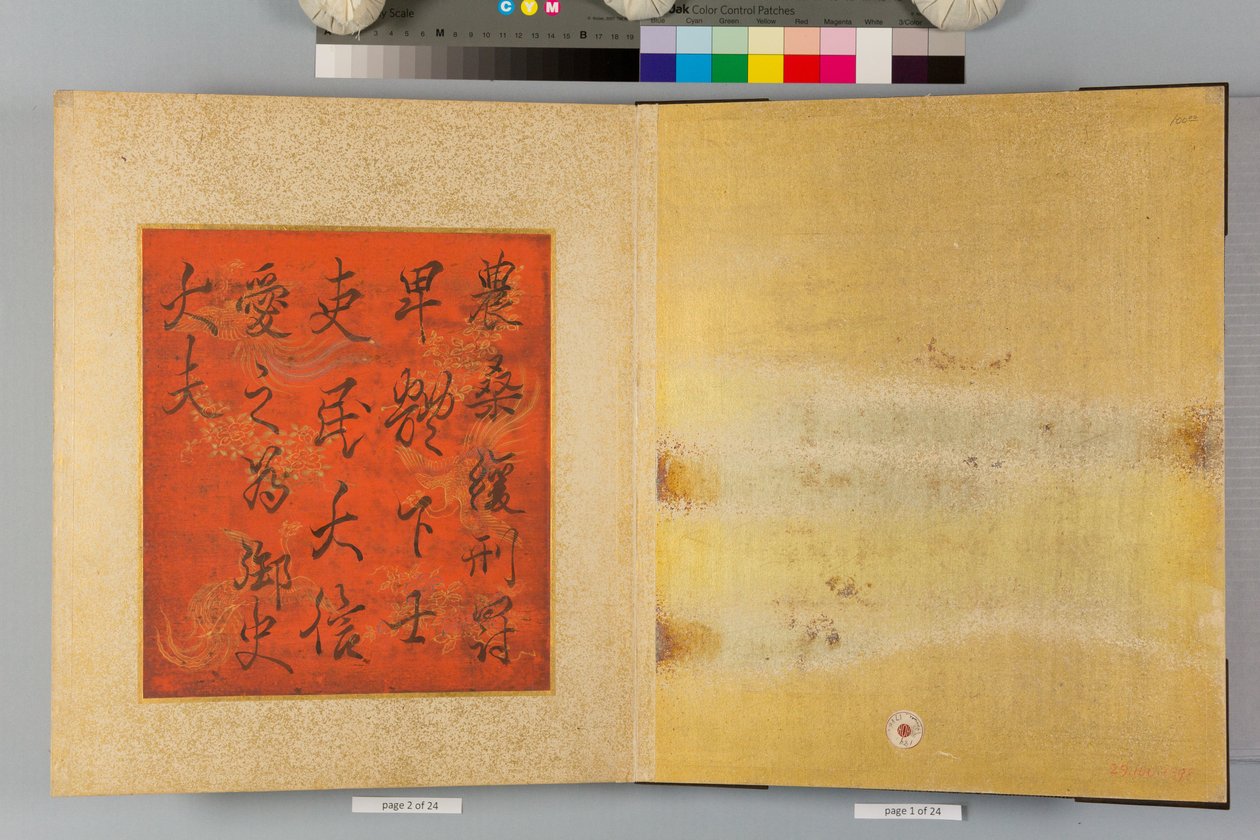 Scale
Color Control Patches
C Y M
A 3 4 5 6 M 8 9 10 11 12 13 14 15 B 17 18 19
Blue Cyan Green Yellow Red Magenta White 3/Color
農桑緩刑罸
卑體下士
吏民大信
愛之為御史
大夫
page 2 of 24
page 1 of 24